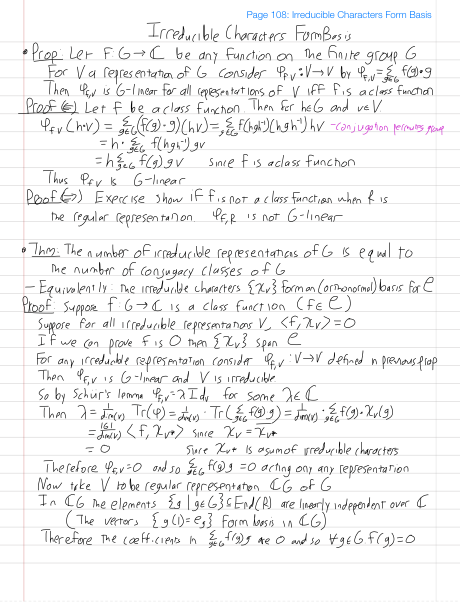 Page 108: Irreducible Characters Form Basis
Irreducible Characters Form Basis
• Prop: Let F: G→ℂ be any function on the finite group G
For V a representation of G consider φ_{f,V}: V→V by φ_{f,V} = Σ_{g∈G} f(g)·g
Then φ_{f,V} is G-linear for all representations of V iff F is a class function
Proof (⇐) Let f be a class function Then for h∈G and v∈V
φ_{f,V}(h·v) = Σ_{g∈G} (f(g)·g)(hv) = Σ_{g∈G} f(hgh⁻¹)(hgh⁻¹)hv - conjugation permutes group
= h·Σ_{g∈G} f(hgh⁻¹)gv
= h Σ_{g∈G} f(g)gv since F is a class function
Thus φ_{f,V} is G-linear
Proof (⇒) Exercise show if F is not a class function when R is
the regular representation φ_{f,R} is not G-linear
• Thm: The number of irreducible representations of G is equal to
the number of conjugacy classes of G
- Equivalently: the irreducible characters {χ_V} form an (orthonormal) basis for C
Proof: Suppose f: G→ℂ is a class function (f∈C)
Suppose for all irreducible representations V, <f, χ_V> = 0
If we can prove F is 0 then {χ_V} span C
For any irreducible representation consider φ_{f,V}: V→V defined in previous prop
Then φ_{f,V} is G-linear and V is irreducible
So by Schur's lemma φ_{f,V} = λ Id_V for some λ∈ℂ
Then λ = 1/dim(V) Tr(φ) = 1/dim(V) · Tr(Σ_{g∈G} f(g)g) = 1/dim(V) Σ_{g∈G} f(g)·χ_V(g)
= |G|/dim(V) <f, χ_{V*}> since χ_V = \overline{χ_{V*}}
= 0 since χ_{V*} is a sum of irreducible characters
Therefore φ_{f,V} = 0 and so Σ_{g∈G} f(g)g = 0 acting on any representation
Now take V to be regular representation ℂG of G
In ℂG the elements {g | g∈G} ⊆ End(R) are linearly independent over ℂ
(The vectors {g(1) = e_g} form basis in ℂG)
Therefore the coefficients in Σ_{g∈G} f(g)g are 0 and so ∀g∈G f(g)=0